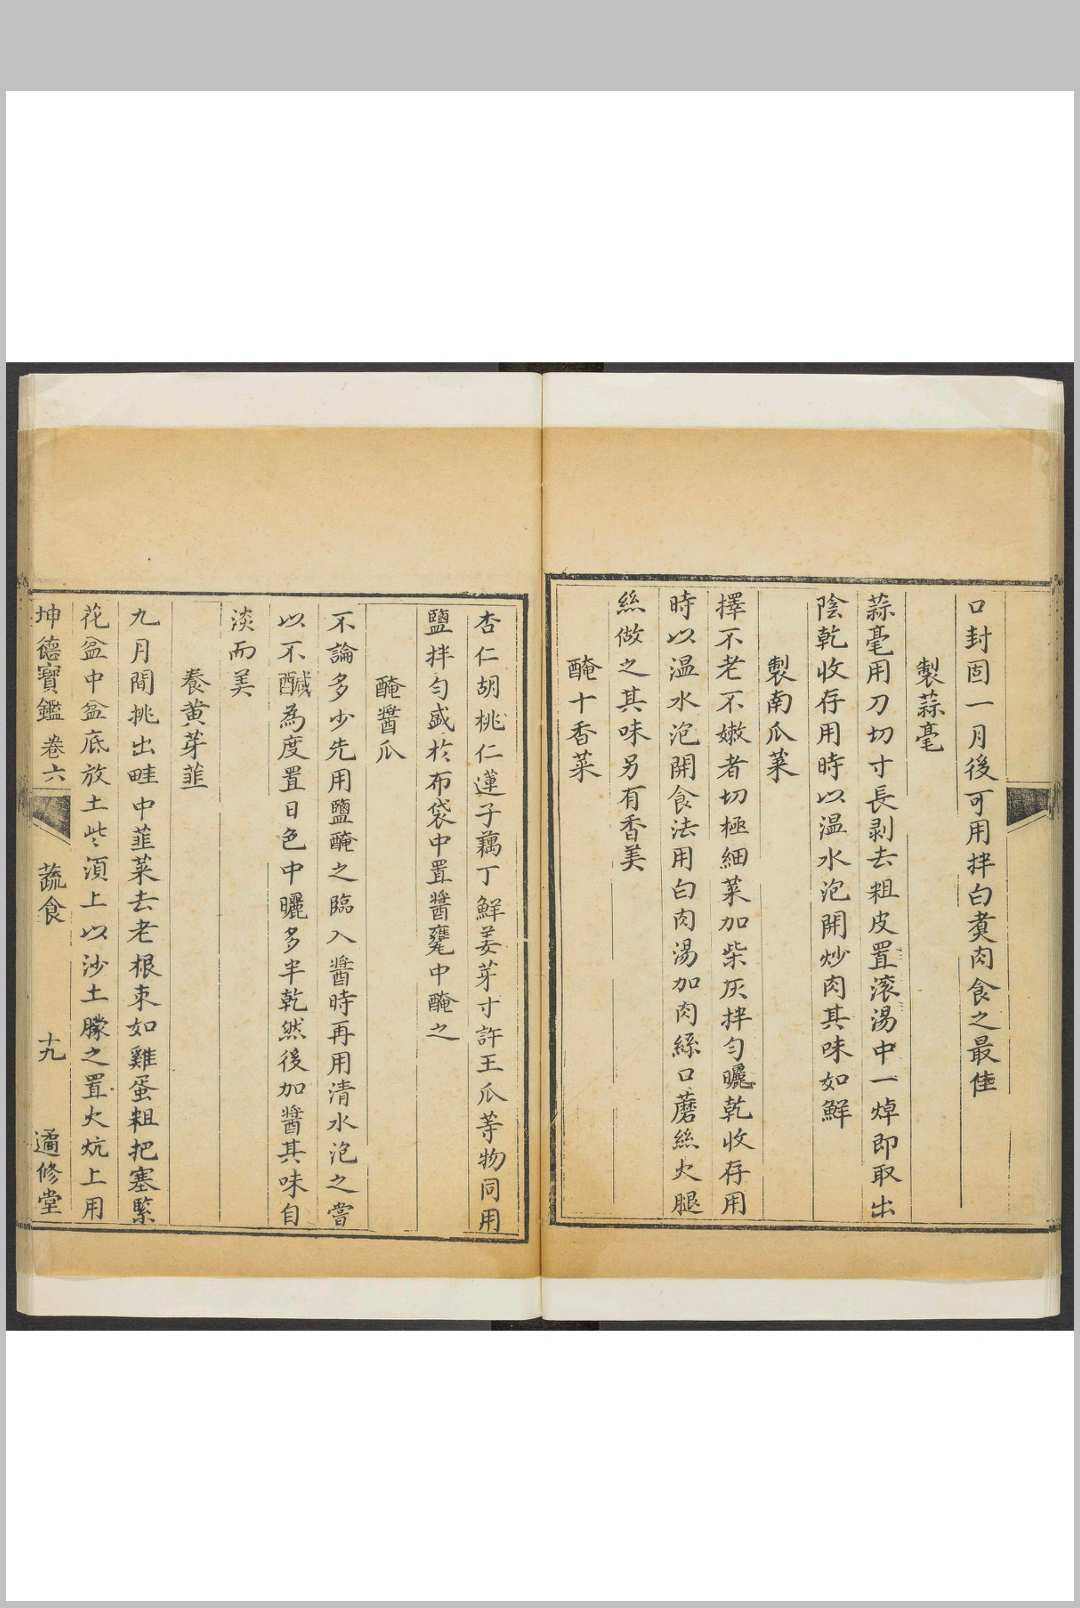 口封固一月後可用拌白煑肉食之最佳
製蒜毫
蒜毫用刀切寸長剥去粗皮置滚湯中一焯即取出
陰乾收存用時以温水泡開炒肉其味如鮮
製南瓜菜
擇不老不嫩者切極細菜加柴灰拌匀曬乾收存用
時以温水泡開食法用白肉湯加肉絲口蘑絲火腿
絲做之其味另有香美
醃十香菜
杏仁胡桃仁蓮子藕丁鮮姜芽寸許王瓜等物同用
鹽拌匀盛於布袋中置醬甕中醃之
醃醬瓜
不論多少先用鹽醃之臨入醬時再用清水泡之嘗
以不醎為度置日色中曬多半乾然後加醬其味自
淡而美
養黄芽韮
九月間挑出畦中韮菜去老根束如雞蛋粗把塞緊
花盆中盆底放土些湏上以沙土矇之置火炕上用
坤德寶鑑 卷六 蔬食 十九 遹修堂